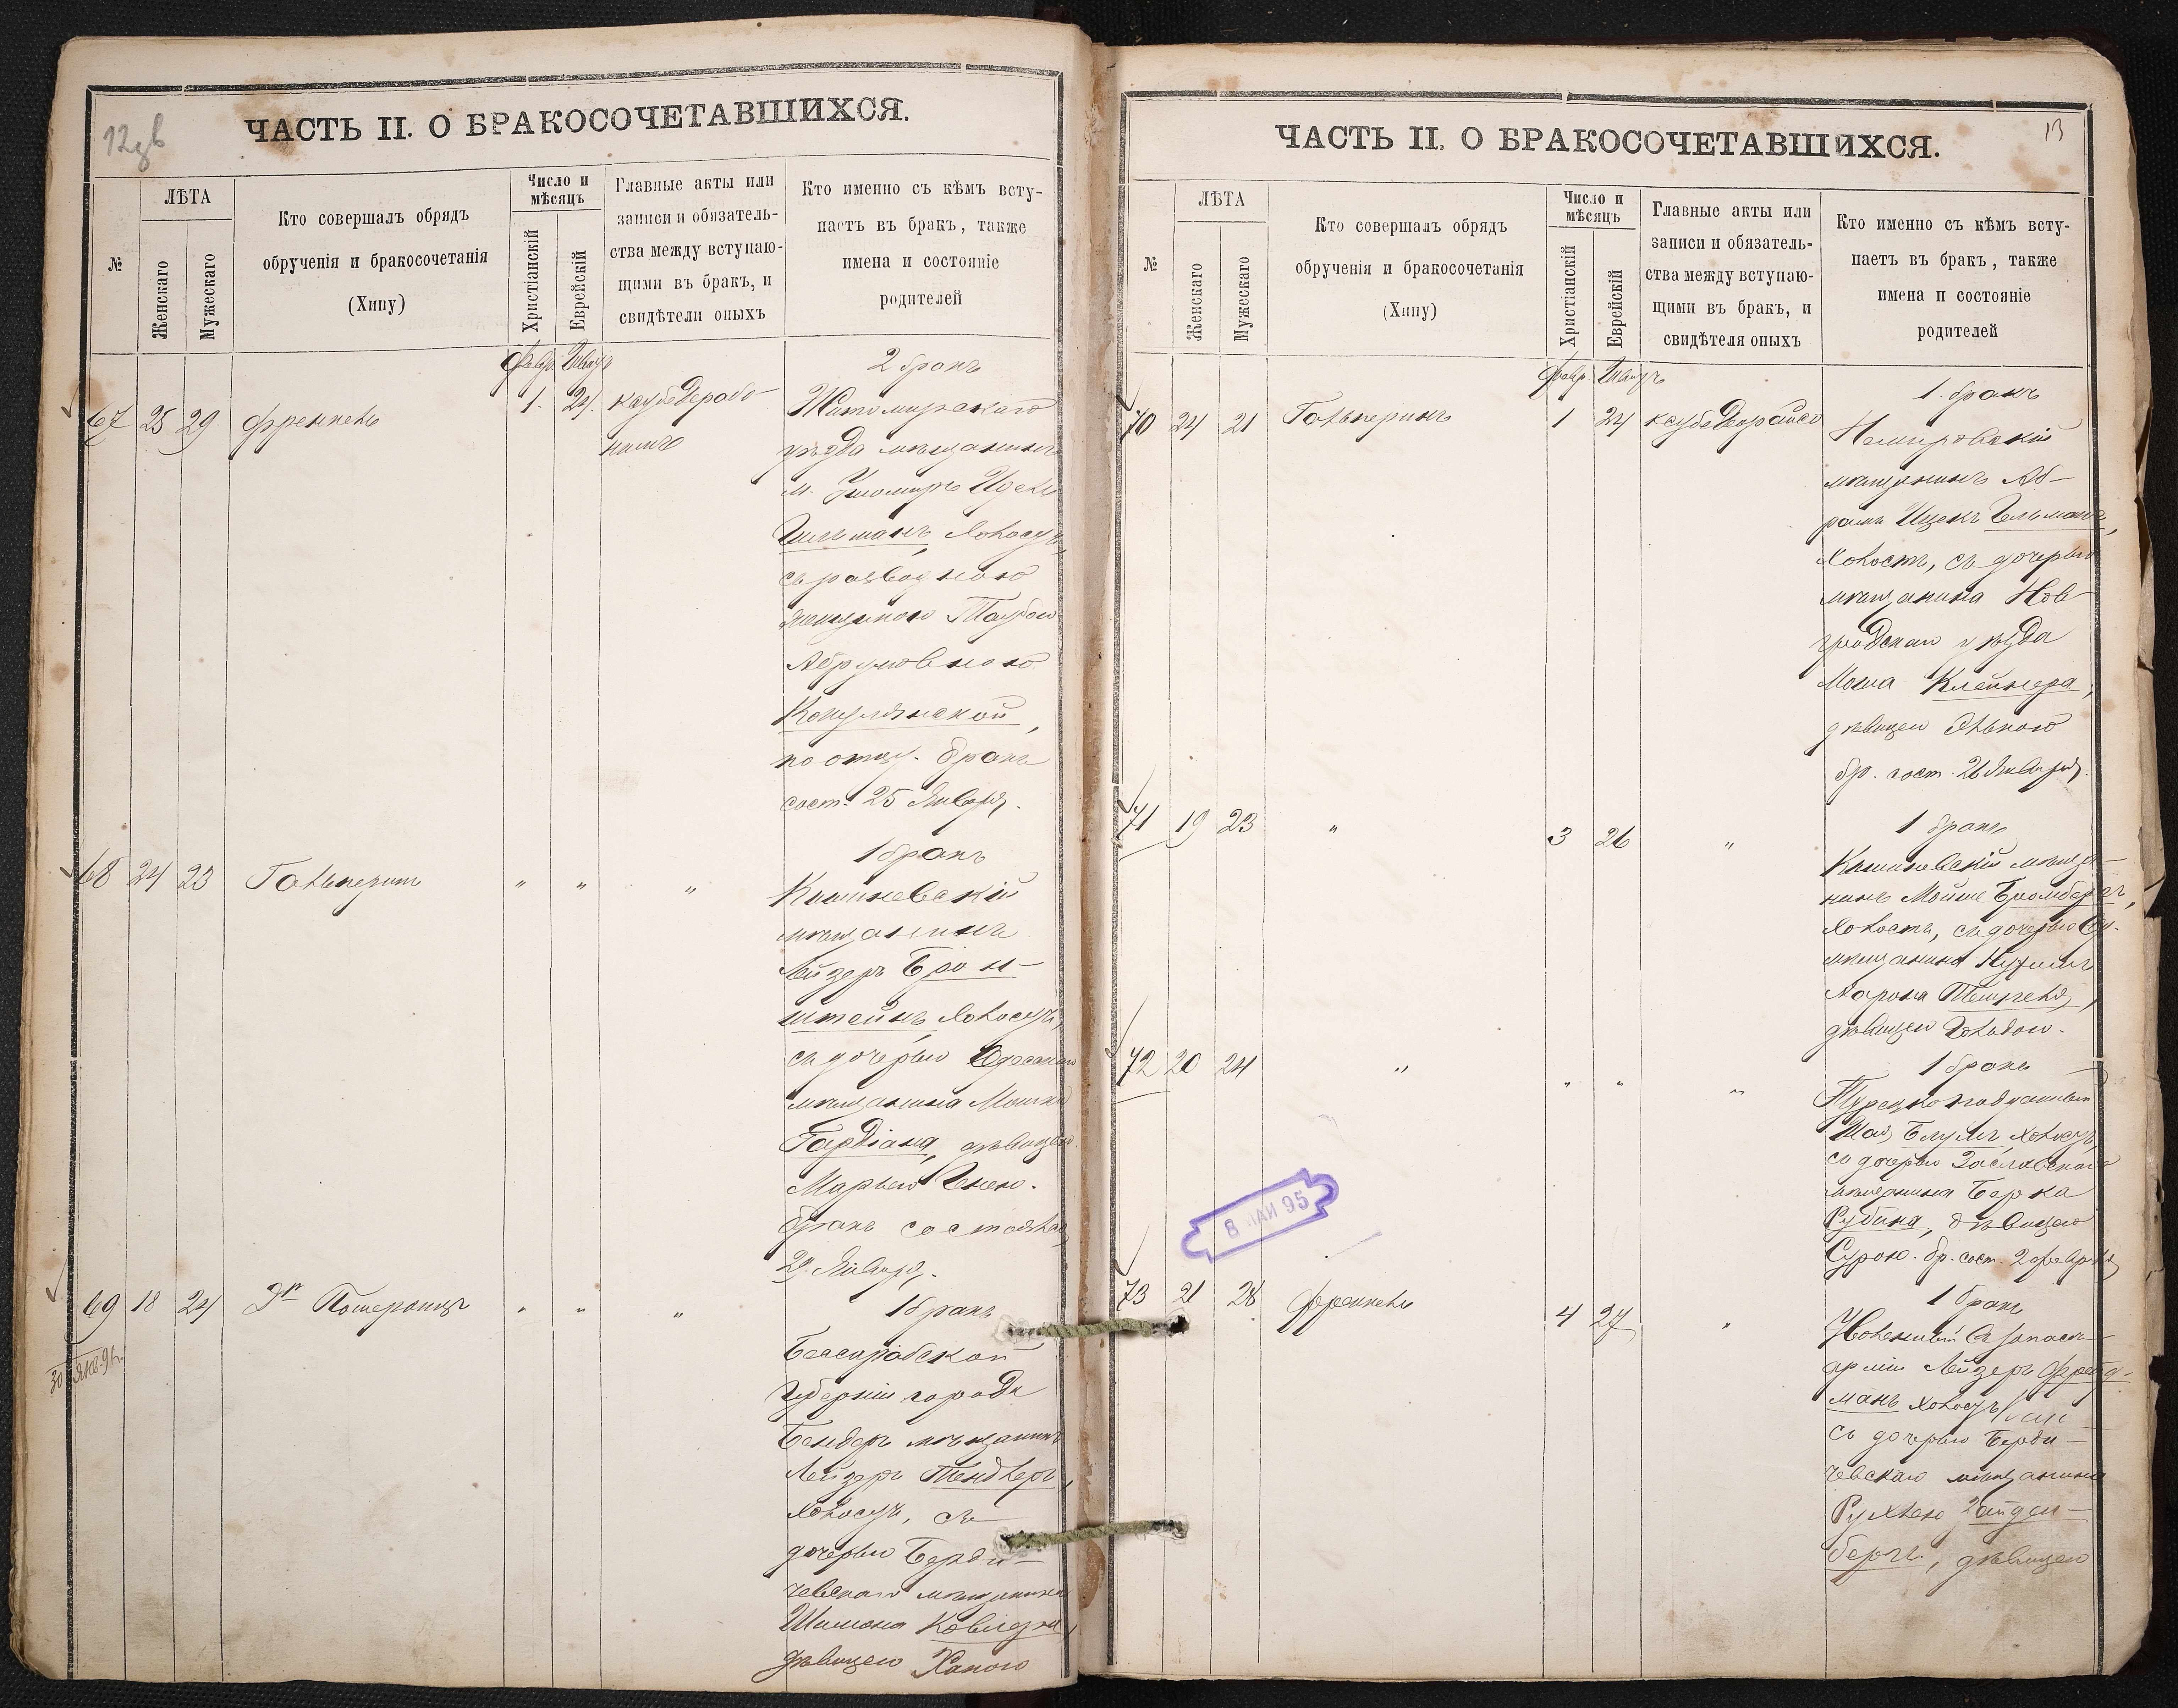 12
ЧАСТЬ II. О БРАКОСОЧЕТАВШИХСЯ.
№
ЛѢТА
Женскаго
Мужескаго
Кто совершалъ обрядъ
обрученія и бракосочетанія
(Хипу)
Число и
мѣсяцъ
Христіанскій
Еврейскій
Главные акты или
записи и обязатель-
ства между вступаю-
щими въ бракъ, и
свидѣтели оныхъ
Кто именно съ кѣмъ всту-
паетъ въ бракъ, также
имена и состояніе
родителей
67 25 29 Френкель
1. 24.
2 бракъ
Житомирскаго
уѣзда мѣщанинъ
м.
Гильманъ холостъ,
съ разводною
женщиною Таубою
Абрумовною
по отцу. бракъ
сост. 25 Января.
68 24 23 Гальперинъ " " "
1 бракъ
Кишиневскій
мѣщанинъ
Лейзеръ Брон-
штейнъ, холостъ,
съ дочерью Одесскаго
мѣщанина Мошка
Гардіана, дѣвицею
Марьею Енею.
бракъ состоялся
29. Января.
69 18 24 Эп Померанцъ " " "
1 бракъ
Бессарабской
Губерніи города
Бендеръ мѣщанинъ
Лейзеръ Тендлеръ,
холостъ, съ
дочерью Берди-
чевскаго мѣщанина
Шимона
дѣвицею Ханою
13
ЧАСТЬ II. О БРАКОСОЧЕТАВШИХСЯ.
№
ЛѢТА
Женскаго
Мужескаго
Кто совершалъ обрядъ
обрученія и бракосочетанія
(Хипу)
Число и
мѣсяцъ
Христіанскій
Еврейскій
Главные акты или
записи и обязатель-
ства между вступаю-
щими въ бракъ, и
свидѣтеля оныхъ
Кто именно съ кѣмъ всту-
паетъ въ бракъ, также
имена и состояніе
родителей
Февр.
70 24 21 Гальперинъ 1 24
1. бракъ
Немировскій
мѣщанинъ Аб-
рамъ Ицекъ Гельманъ,
холостъ, съ дочерью
мѣщанина Нов-
градскаго уѣзда
Мошка Клейнера,
дѣвицею Элькою
бр. сост. 26 Января.
71 19 23 " 3 26 "
1 бракъ
Кишиневскій мѣща-
нинъ Мойше Бромбергъ,
холостъ, съ дочерью
мѣщанина
Аарона
дѣвицею Гольдою.
72 20 24 " " " "
1 бракъ
Турецко подданный
Шая Блумъ, холостъ,
съ дочерью Заславскаго
мѣщанина Берка
Рубина, дѣвицею
Сурою. бр. сост. 2 февраля
8 МАЙ 95
73 21 28 Френкель 4 27 "
1 бракъ
арміи Лейзеръ Фрейд-
манъ холостъ
съ дочерью Берди-
чевскаго мѣщанина
Рухлею Зайден-
бергъ, дѣвицею